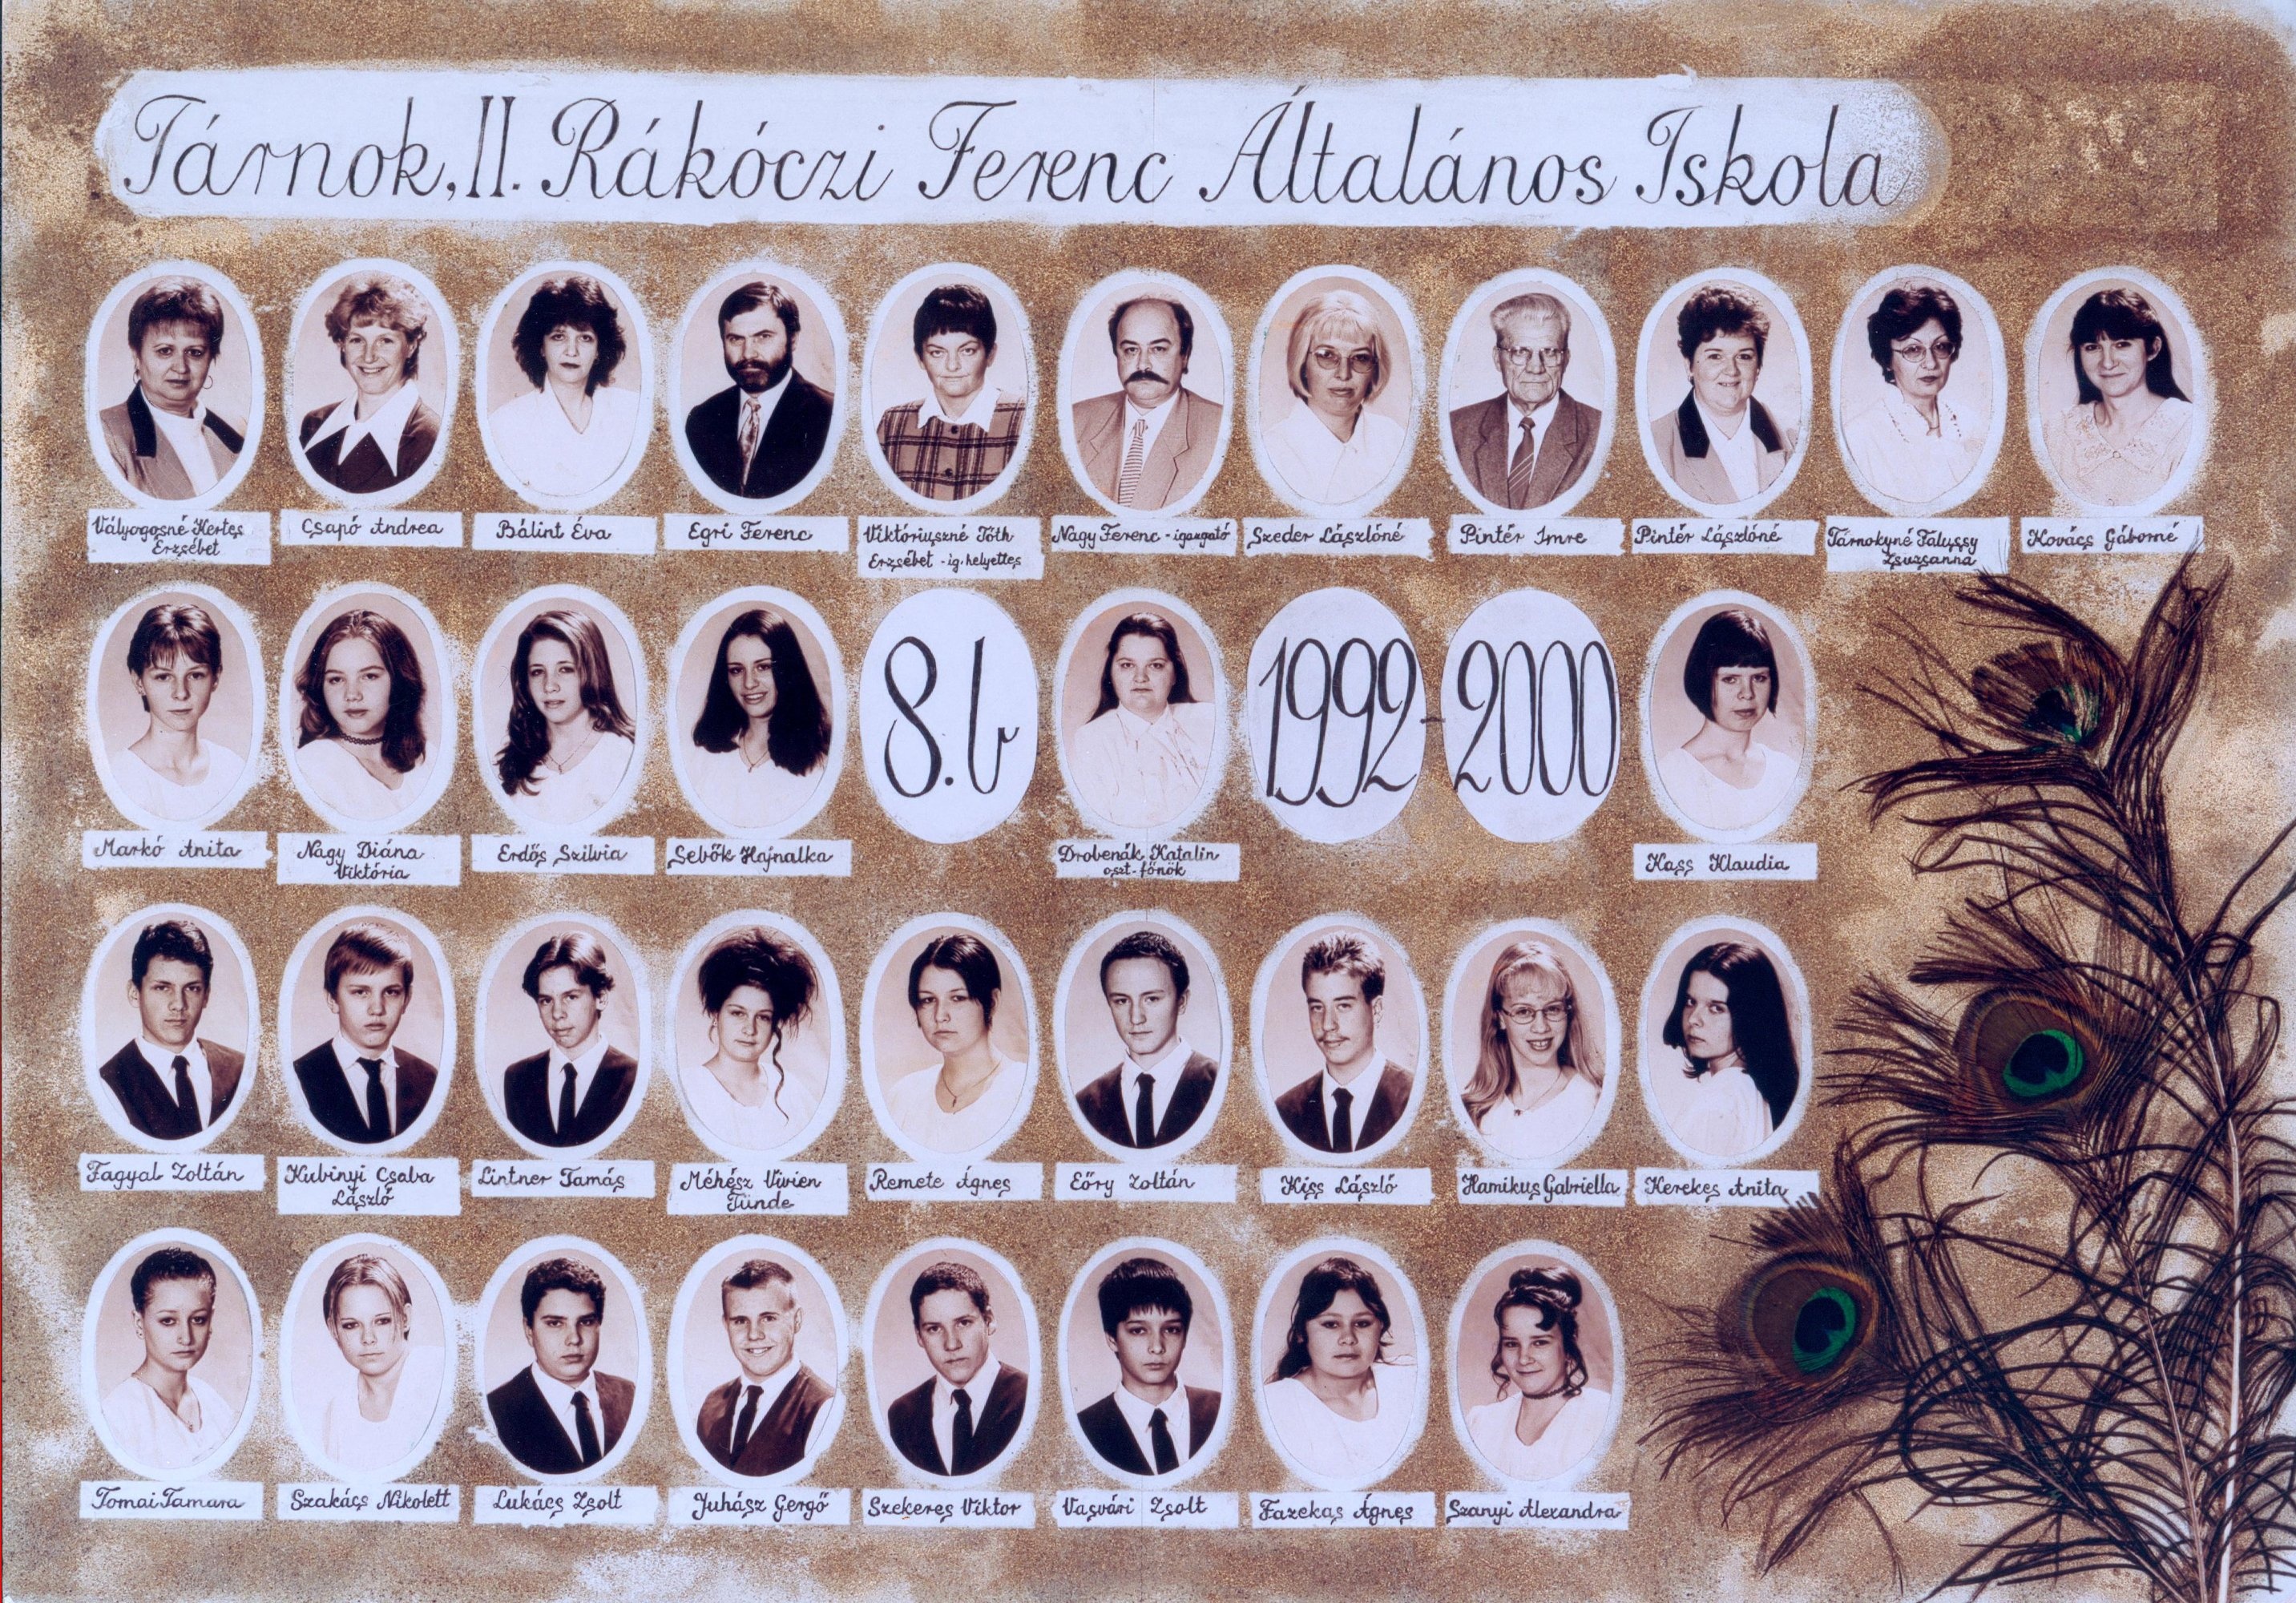 Tárnok, II. Rákóczi Ferenc Általános Iskola
Vályogosné Kertes
Erzsébet
Csapó Andrea
Bálint Éva
Egri Ferenc
Viktóriuszné Tóth
Erzsébet - ig. helyettes
Nagy Ferenc - igazgató
Szeder Lászlóné
Pintér Imre
Pintér Lászlóné
Tárnokyné Falussy
Zsuzsanna
Kovács Gáborné
8.b
1992-2000
Markó Anita
Nagy Diána
Viktória
Erdős Szilvia
Sebők Hajnalka
Drobenák Katalin
oszt. főnök
Kass Klaudia
Fagyal Zoltán
Kubinyi Csaba
László
Lintner Tamás
Méhész Vivien
Tünde
Remete Ágnes
Eőry Zoltán
Kiss László
Hamikus Gabriella
Kerekes Anita
Tomai Tamara
Szakács Nikolett
Lukács Zsolt
Juhász Gergő
Szekeres Viktor
Vasvári Zsolt
Fazekas Ágnes
Szanyi Alexandra